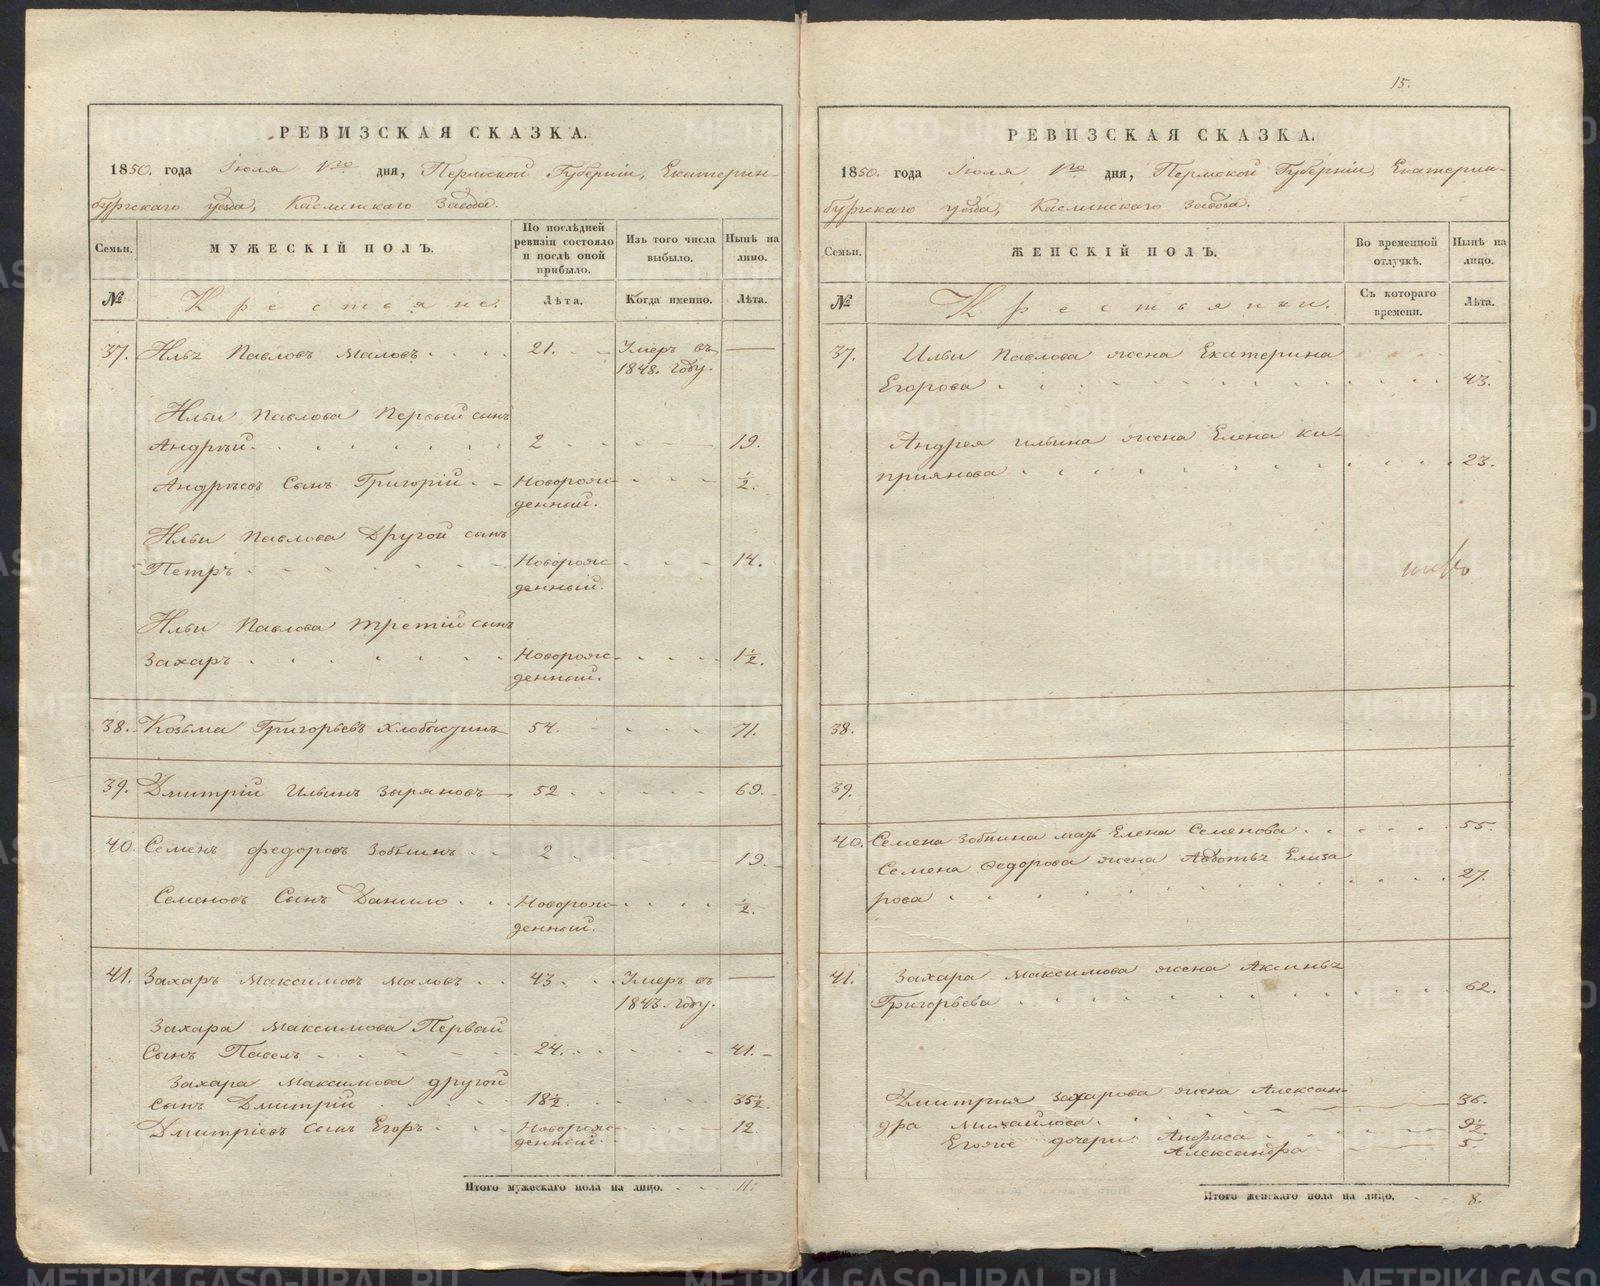 РЕВИЗСКАЯ СКАЗКА.
1850. года Июля 1го дня, Пермской Губерніи, Екатерин-
бургскаго уезда, Каслинскаго Завода.
Семьи. МУЖЕСКІЙ ПОЛЪ. По послѣдней ревизіи состояло и послѣ оной прибыло. Изъ того числа выбыло. Нынѣ на лицо.
№ Крестьяне. Лѣта. Когда именно. Лѣта.
37. Илья Павловъ Маловъ 21. Умеръ въ
1848. Году.
Ильи Павлова Первый сынъ
Андрѣй 2 19.
Андрѣевъ Сынъ Григорій Новорож- ½.
денный.
Ильи Павлова Другой сынъ
Петръ Новорож- 14.
денный.
Ильи Павлова третій сынъ
Захаръ Новорож- 1½.
денный.
38. Козьма Григорьевъ Хлобыстинъ 54. 71.
39. Дмитрій Ильинъ Зыряновъ 52 69.
40. Семенъ Федоровъ Зобнинъ 2 19.
Семеновъ Сынъ Данило Новорож- ½.
денный.
41. Захаръ Максимовъ Маловъ 43. Умеръ въ
1843. Году.
Захара Максимова Первый
Сынъ Павелъ 24. 41.
Захара Максимова другой
сынъ Дмитрій 18½. 35½.
Дмитріевъ сынъ Егоръ Новорож- 12.
денный.
Итого мужескаго пола на лицо. 11.
15.
РЕВИЗСКАЯ СКАЗКА.
1850. года Июля 1го дня, Пермской Губерніи, Екатерин-
бургскаго уезда, Каслинскаго Завода.
Семьи. ЖЕНСКІЙ ПОЛЪ. Во временной отлучкѣ. Нынѣ на лицо.
№ Крестьянки. Съ котораго времени. Лѣта.
37. Ильи Павлова жена Екатерина
Егорова 43.
Андрея Ильина жена Елена Ки-
приянова 23.
38.
39.
40. Семена Зобнина мать Елена Семенова 55.
Семена Федорова жена Авдотья Елиза
рова 27.
41. Захара Максимова жена Аксинья
Григорьева 62.
Дмитрия Захарова жена Алексан-
дра Михайлова. 36.
Егоже дочери: Анфиса 9½
Александра 5.
Итого женскаго пола на лицо. 8.
METRIKI.GASO-URAL.RU